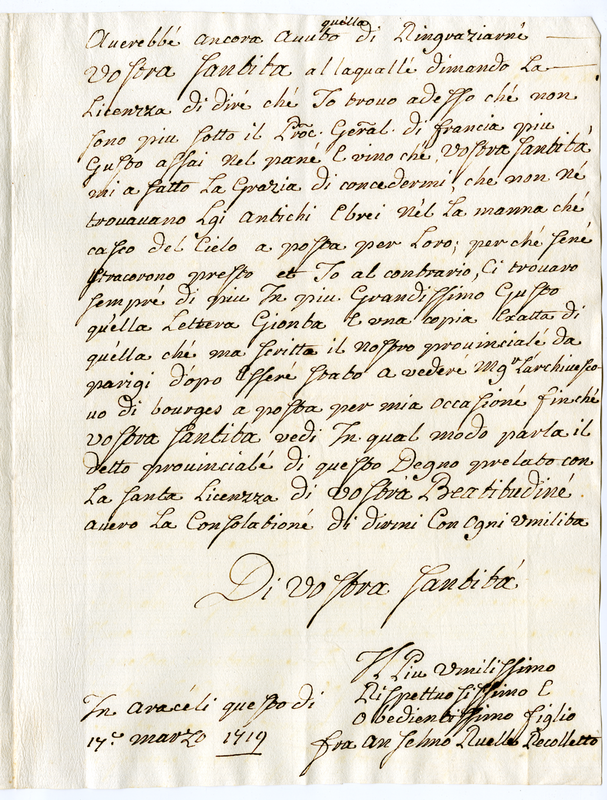 quélla
Auerebbé ancora auuto di Ringraziarné
Vostra Santita allaquallé dimando La
Licenzza di diré ché Io trouo adesso ché non
sono piu sotto il Proc. Geral. di francia piu
Gusto assai nel pané E vino ché, Vostra Santitá
mi a fatto La Grazia di concedermi, che non né
trouauano Lgi antichi Ebrei Nél La manna ché
casco del Cielo a posta per Loro; perché sené
stracorono presto et Io al contrario, Ci trouaro
sempré di piu In piu Grandissimo Gusto
quélla Lettera Gionta E vna copia Exatta di
quélla ché ma scritta il nostro prouincialé da
parigi dópo Esseré stato a vederé Mgr L'archiuesco
uo di bourges a posta per mia occasioné finché
Vostra Santita vedi In qual modo parla il
detto prouincialé di questo Degno prelato con
La santa Licenzza di Vostra Beatitudiné
auero La Consolationé di dirmi Con ogni vmilita
Di Vostra Santitá
Il Piu vmilissimo
Rispettuosissimo E
Obedientissimo figlio
fra Anselmo Ruelle Recolletto
In aracéli questo di
17.º marzo 1719